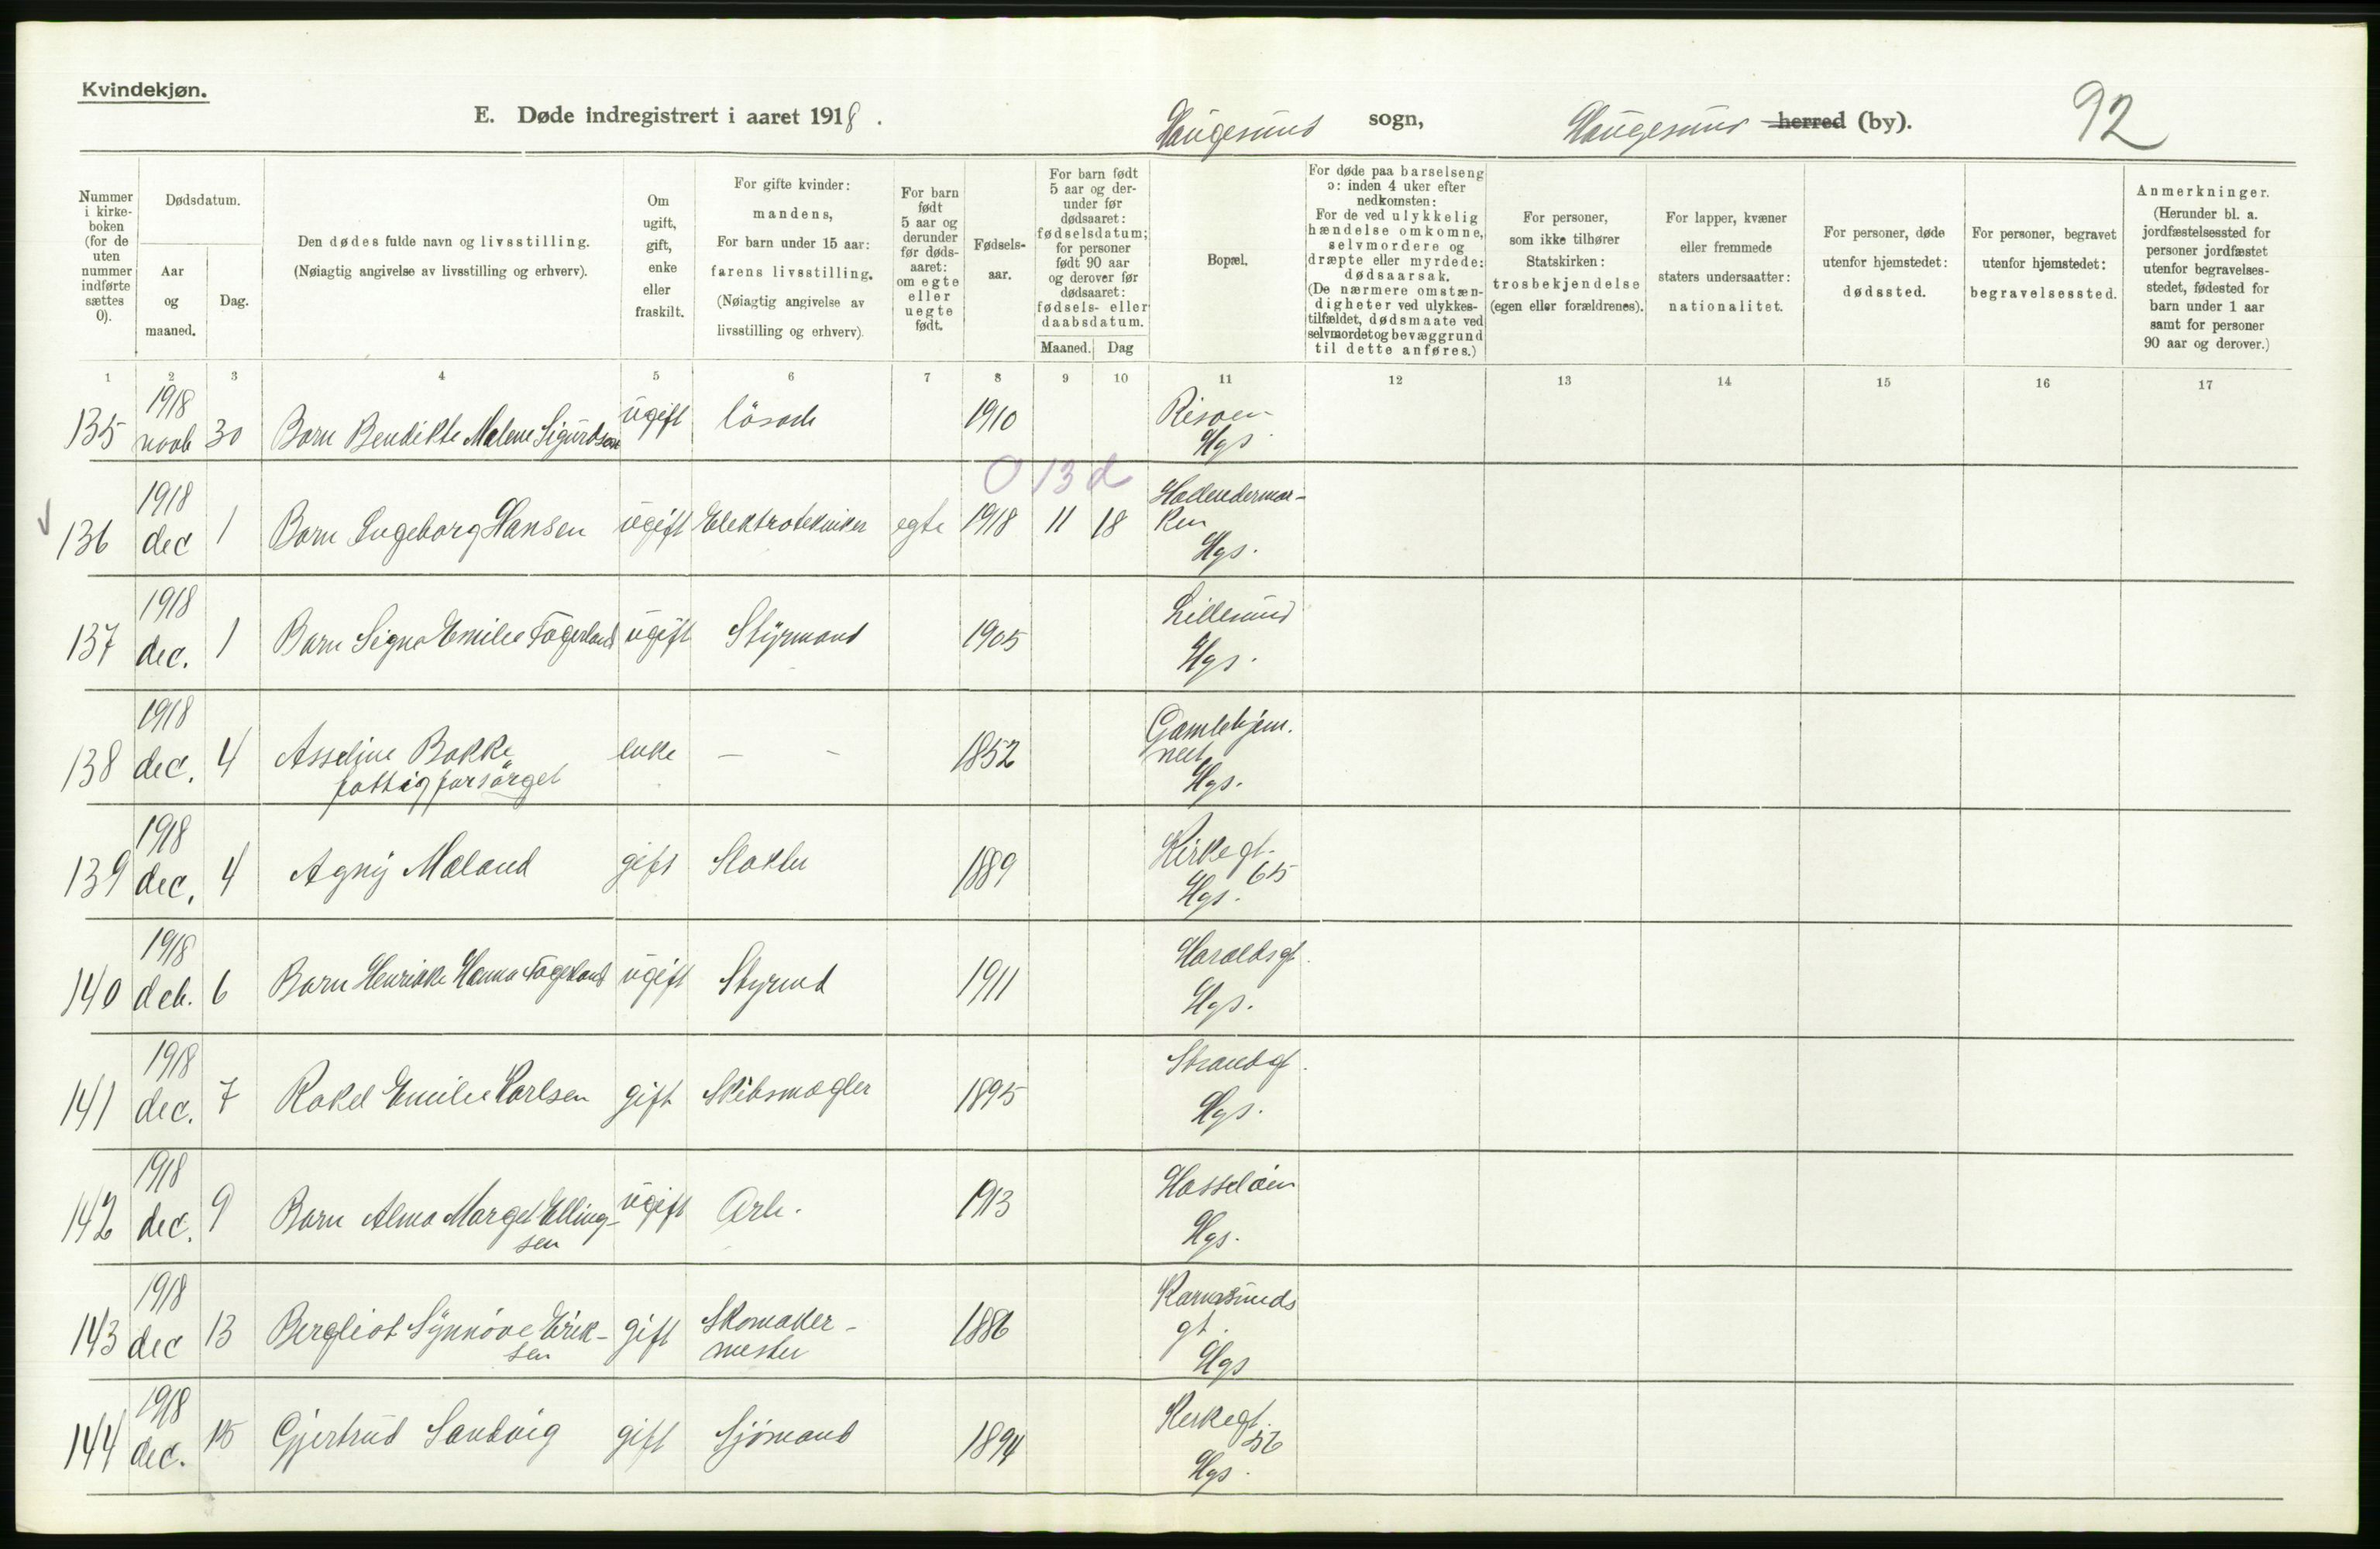 Kvindekjøn.
E. Døde indregistrert i aaret 1918. Haugesund sogn, Haugesund herred (by). 92
Nummer i kirkeboken (for de uten nummer indførte sættes 0).
Dødsdatum.
Aar og maaned.
Dag.
Den dødes fulde navn og livsstilling.
(Nøiagtig angivelse av livsstilling og erhverv).
Om ugift, gift, enke eller fraskilt.
For gifte kvinder: mandens,
For barn under 15 aar: farens livsstilling.
(Nøiagtig angivelse av livsstilling og erhverv).
For barn født 5 aar og derunder før dødsaaret: om egte eller uegte født.
Fødselsaar.
For barn født 5 aar og derunder før dødsaaret: fødselsdatum; for personer født 90 aar og derover før dødsaaret: fødsels- eller daabsdatum.
Maaned. Dag
Bopæl.
For døde paa barselseng ɔ: inden 4 uker efter nedkomsten:
For de ved ulykkelig hændelse omkomne, selvmordere og dræpte eller myrdede: dødsaarsak.
(De nærmere omstændigheter ved ulykkestilfældet, dødsmaate ved selvmordet og bevæggrund til dette anføres.)
For personer, som ikke tilhører Statskirken: trosbekjendelse (egen eller forældrenes).
For lapper, kvæner eller fremmede staters undersaatter: nationalitet.
For personer, døde utenfor hjemstedet: dødssted.
For personer, begravet utenfor hjemstedet: begravelsessted.
Anmerkninger.
(Herunder bl. a. jordfæstelsessted for personer jordfæstet utenfor begravelsesstedet, fødested for barn under 1 aar samt for personer 90 aar og derover.)
1 2 3 4 5 6 7 8 9 10 11 12 13 14 15 16 17
135 1918 novb 30 Barn Bendikte Malene Sigurdsen ugift lösarb 1910 Risøen Hgs.
0 13 d
136 1918 dec 1 Barn Ingeborg Hansen ugift Elektrotekniker egte 1918 11 18 Hollendermarken Hgs.
137 1918 dec. 1 Barn Signe Emilie Fagerland ugift Styrmand 1905 Lillesund Hgs.
138 1918 dec. 4 Asseline Bakke enke — — 1852 Gamlehjemmet Hgs.
fattigforsörget
139 1918 dec. 4 Agny Mæland gift Slakter 1889 Kirkegt. 65 Hgs.
140 1918 deb. 6 Barn Henrikke Hanna Fagerland ugift Styrmd 1911 Haraldsgt. Hgs.
141 1918 dec. 7 Rakel Emilie Karlsen gift Skibsmægler 1895 Strandgt. Hgs.
142 1918 dec. 9 Barn Alma Marget Ellingsen ugift Arb. 1913 Hasseløen Hgs.
143 1918 dec 13 Bergliot Synnöve Eriksen gift Skomakermester 1886 Karmsunds gt. Hgs
144 1918 dec. 15 Gjertrud Sandvig gift Sjömand 1894 Kirkegt. 56 Hgs.